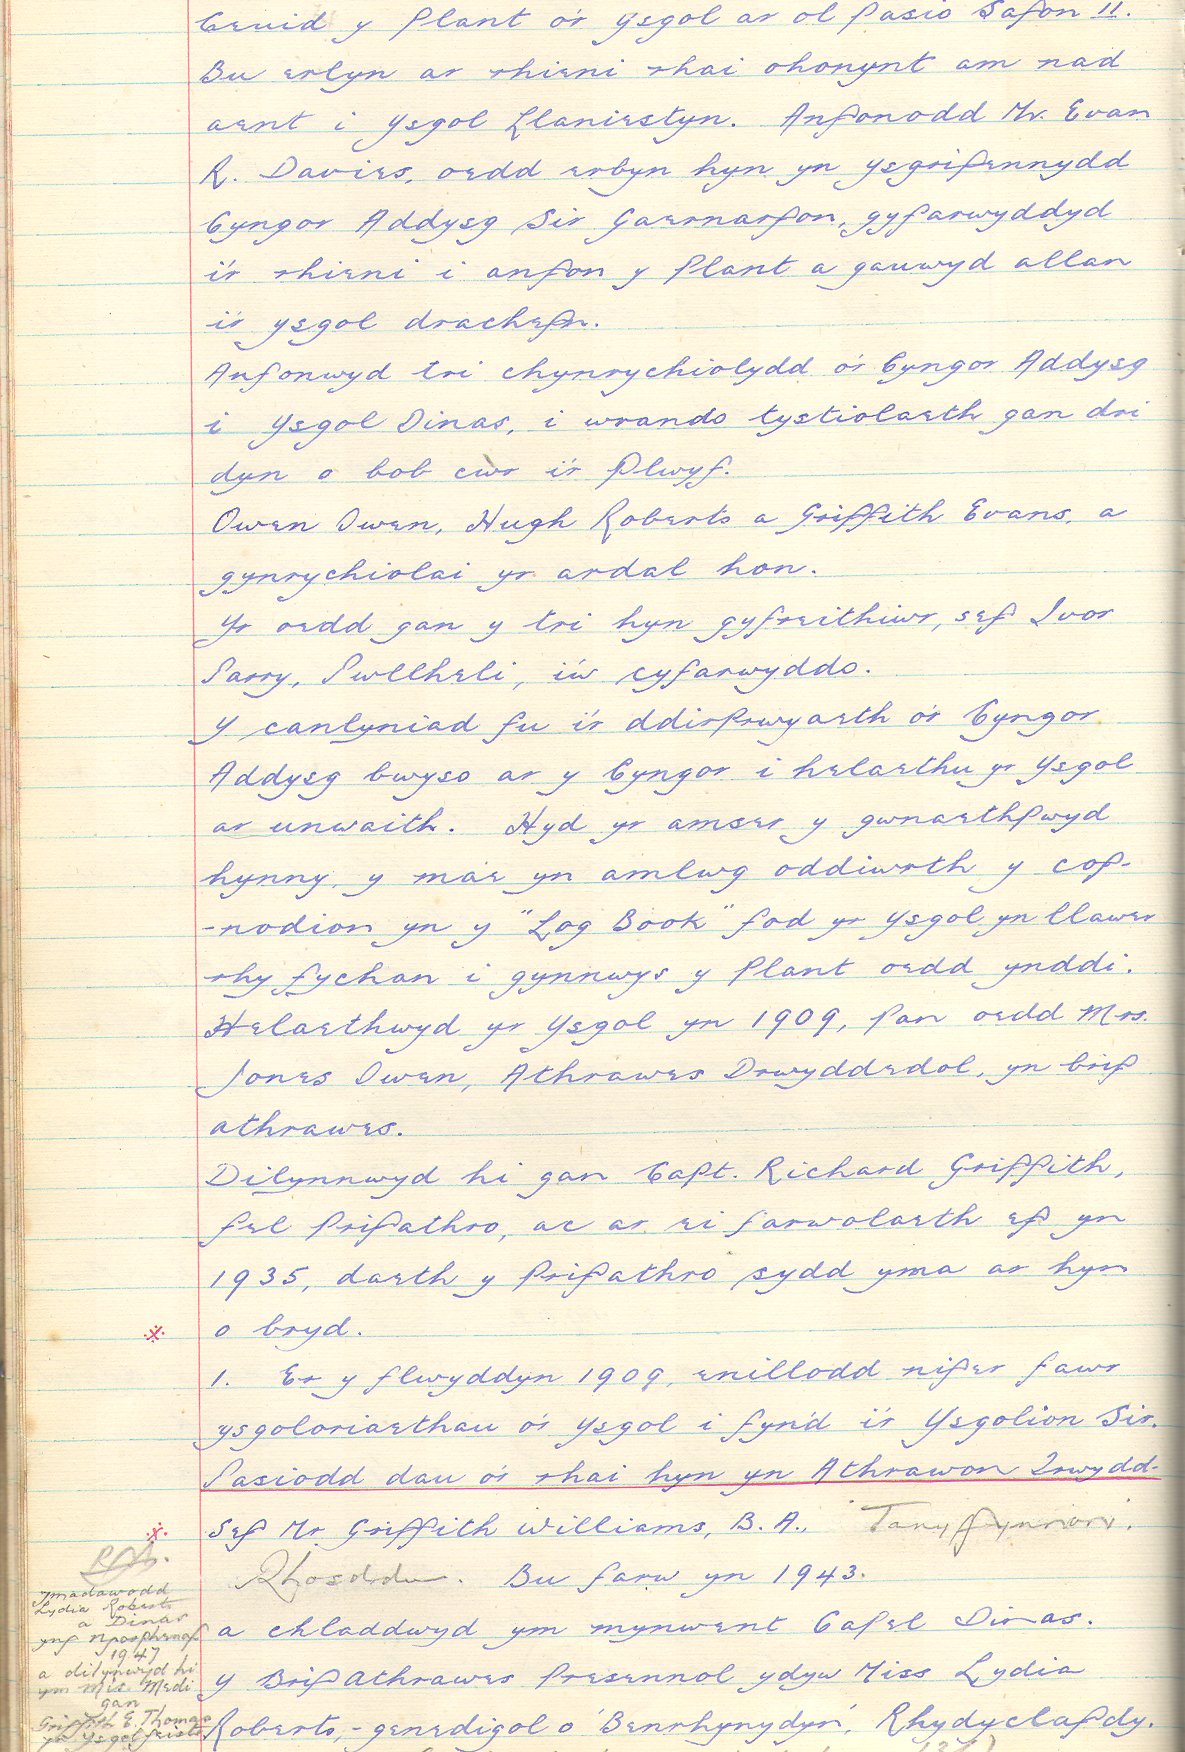 Ceuid y Plant o'r Ysgol ar ol Pasio Safon II.
Bu erlyn ar rhieni rhai ohonynt am nad
aent i Ysgol Llaniestyn. Anfonodd Mr. Evan
R. Davies, oedd erbyn hyn yn Ysgrifennydd
Cyngor Addysg Sir Gaernarfon, gyfarwyddyd
i'r rhieni i anfon y Plant a gauwyd allan
i'r ysgol drachefn.
Anfonwyd tri chynrychiolydd o'r Cyngor Addysg
i Ysgol Dinas, i wrando tystiolaeth gan dri
dyn o bob cwr i'r Plwyf.
Owen Owen, Hugh Roberts a Griffith Evans, a
gynrychiolai yr ardal hon.
Yr oedd gan y tri hyn gyfreithiwr, sef Ivor
Parry, Pwllheli, i'w cyfarwyddo.
Y canlyniad fu i'r ddirprwyaeth o'r Cyngor
Addysg bwyso ar y Cyngor i helaethu yr Ysgol
ar unwaith. Hyd yr amser y gwnaethpwyd
hynny, y mae yn amlwg oddiwrth y cof-
-nodion yn y "Log Book" fod yr Ysgol yn llawer
rhy fychan i gynnwys y Plant oedd ynddi.
Helaethwyd yr Ysgol yn 1909, pan oedd Mrs.
Jones Owen, Athrawes Drwyddedol, yn brif
athrawes.
Dilynnwyd hi gan Capt. Richard Griffith,
fel Prifathro, ac ar ei farwolaeth ef yn
1935, daeth y Prifathro sydd yma ar hyn
※ o bryd.
1. Er y flwyddyn 1909, enillodd nifer fawr
ysgoloriaethau o'r Ysgol i fyn'd i'r Ysgolion Sir.
Pasiodd dau o'r rhai hyn yn Athrawon Trwydd-
※ Sef Mr Griffith Williams, B.A., Tanyffynnon,
Rhosddu. Bu farw yn 1943.
a chladdwyd ym mynwent Capel Dinas.
Y Brif Athrawes Presennol ydyw Miss Lydia
Roberts, - genedigol o 'Benrhynydyn', Rhydyclafdy.
Ymadawodd
Lydia Roberts
a Dinas
yng Ngorphenaf
1947
a dilynwyd hi
ym mis Medi
gan
Griffith E. Thomas